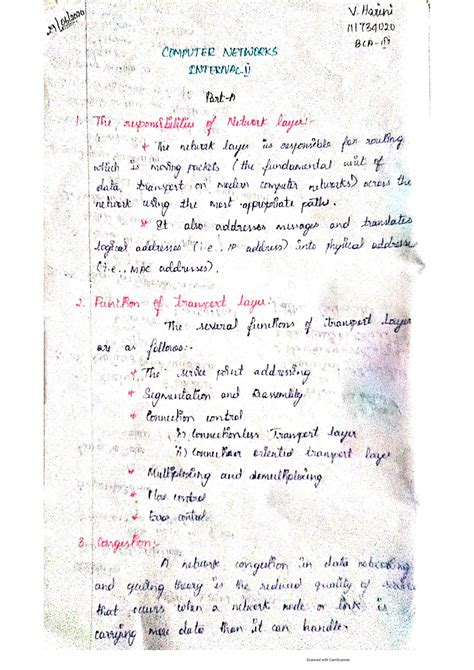 29/06/2020
V. Harini
111734020
BCA-III
COMPUTER NETWORKS
INTERNAL-II
Part-A
1. The responsibilities of Network layer:-
* The network layer is responsible for routing
which is moving packets (the fundamental unit of
data, transport on modern computer networks) across the
network using the most appropriate paths.
* It also addresses messages and translates
logical addresses (i.e., IP address) into physical address
(i.e., MAC addresses).
2. Function of transport layer:-
The several functions of transport layer
are as follows:-
* The service point addressing
* Segmentation and
* Connection control
i) Connectionless Transport layer
ii) Connection oriented transport layer
* Multiplexing and demultiplexing
* Flow control
* Error control
3. Congestion:-
A network congestion in data networking
and queuing theory is the reduced quality of service
that occurs when a network node or link is
carrying more data than it can handle.
Scanned with CamScanner